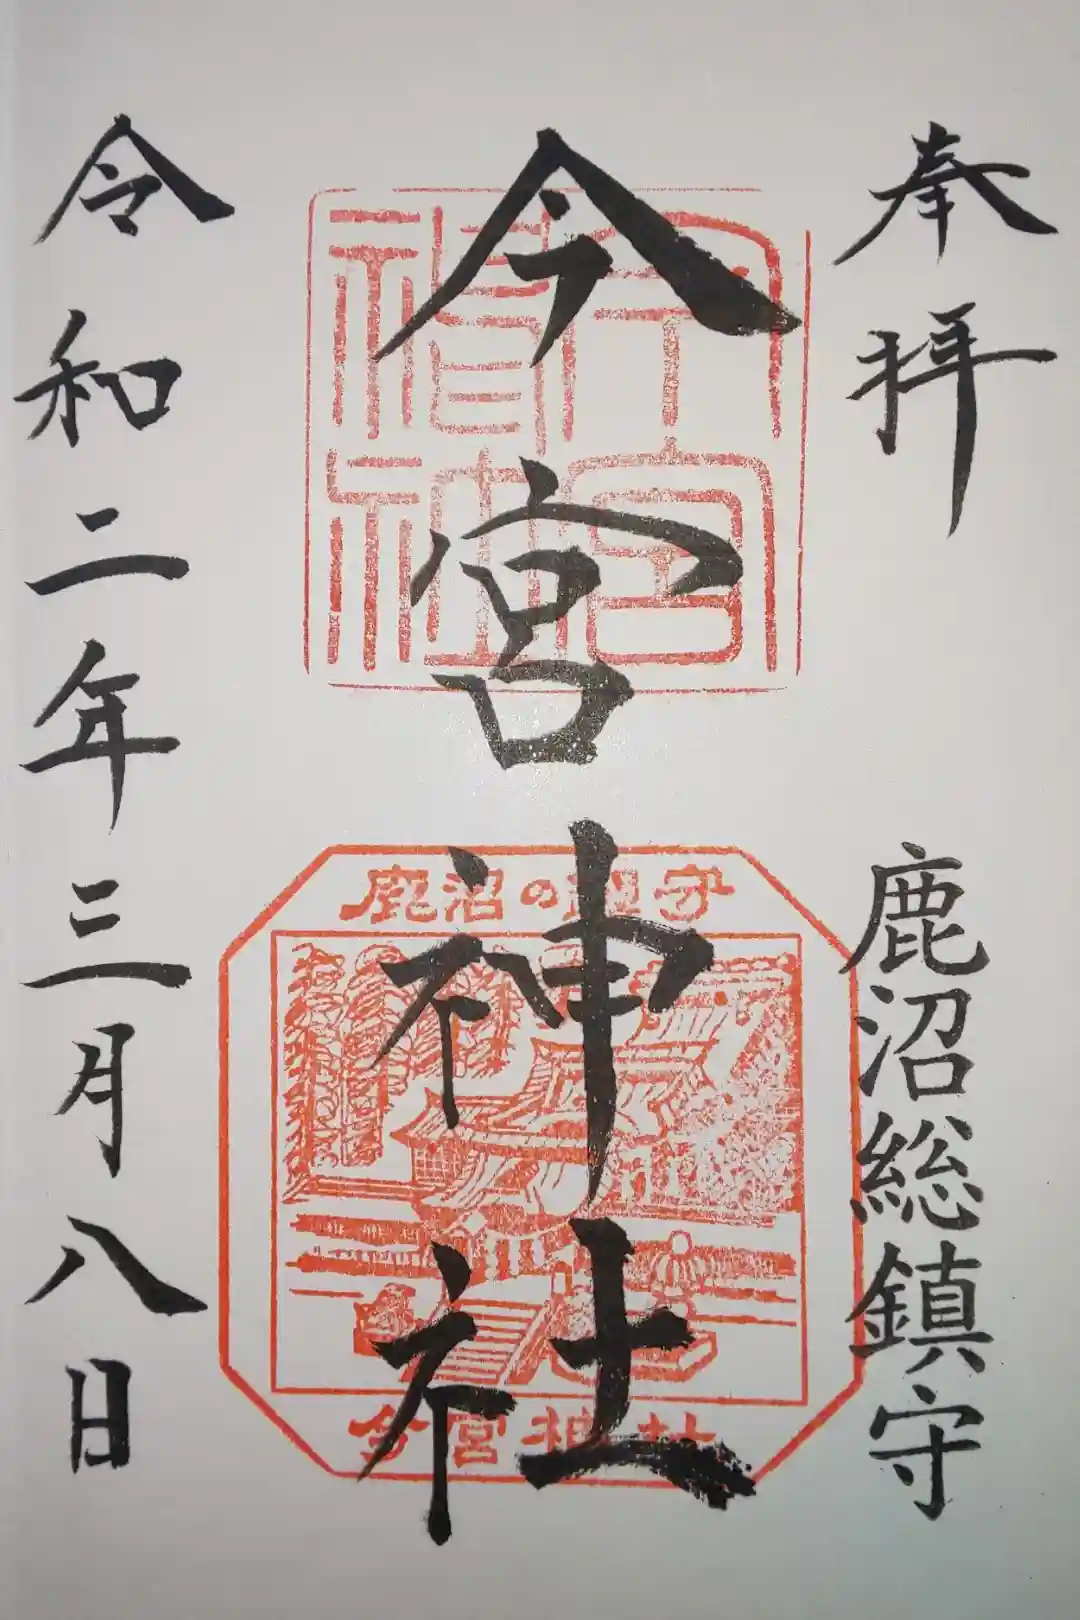 奉拝
鹿沼総鎮守
今宮神社
今宮神社
鹿沼の鎮守
今宮神社
令和二年三月八日